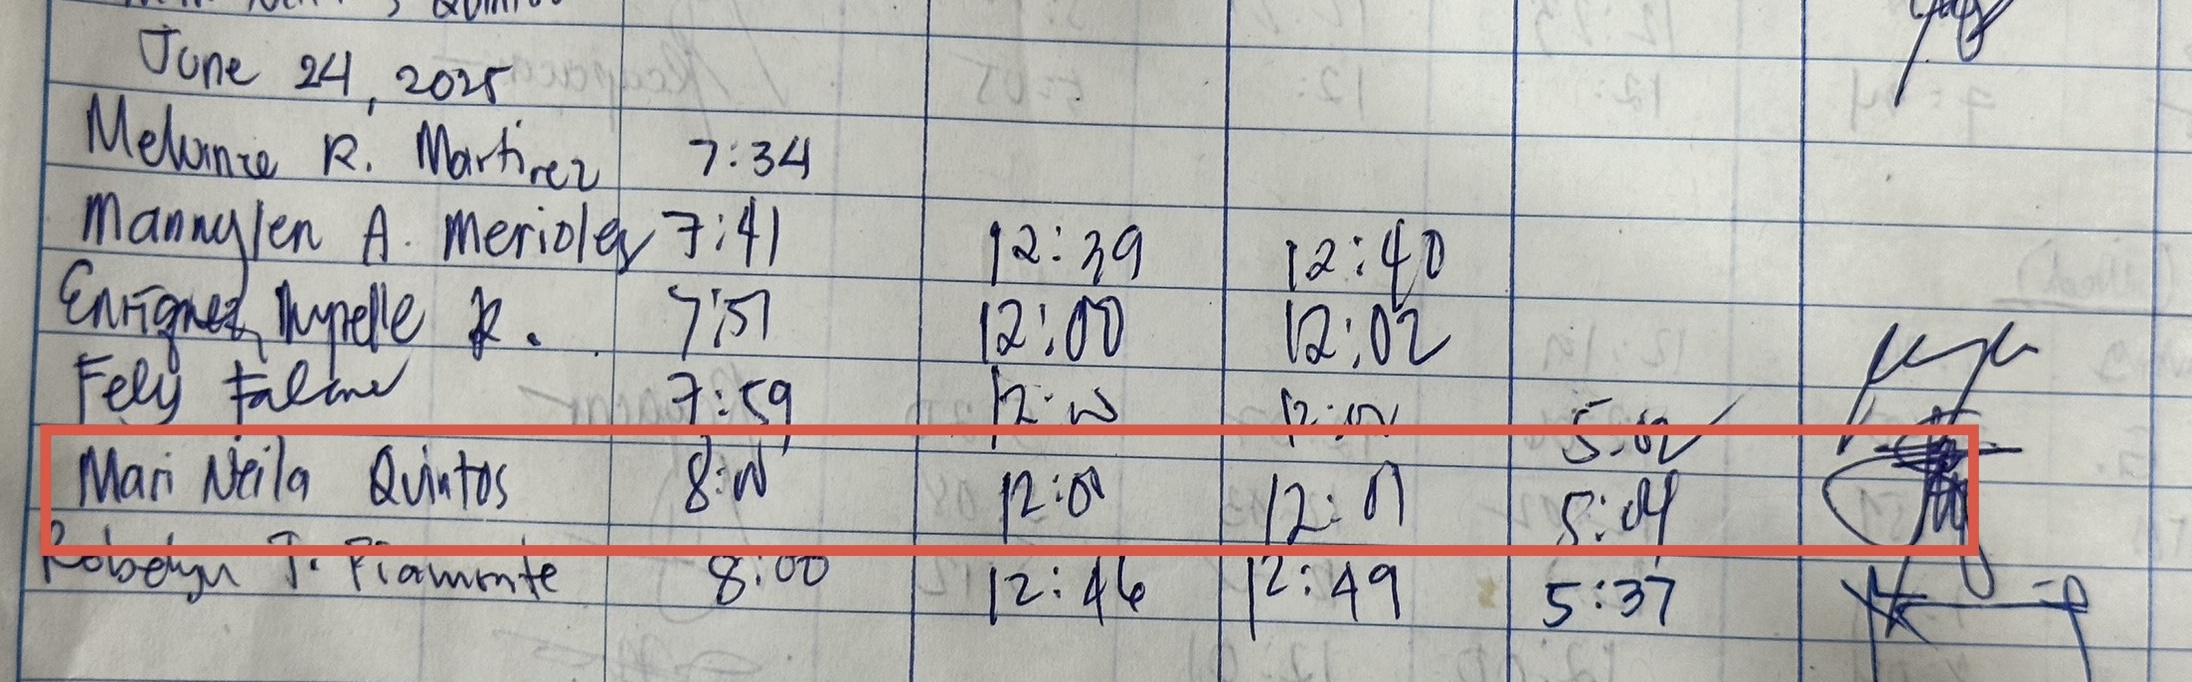 June 24, 2025
Melvinze R. Martirez 7:34
Mannylen A. Merioles 7:41 12:39 12:40
Enriquez, R. 7:51 12:00 12:02
Fely 7:59 12:00 12:01 5:02
Mari Neila Quintos 8:00 12:00 12:01 5:04
Robelyn J. Piamonte 8:00 12:46 12:49 5:37